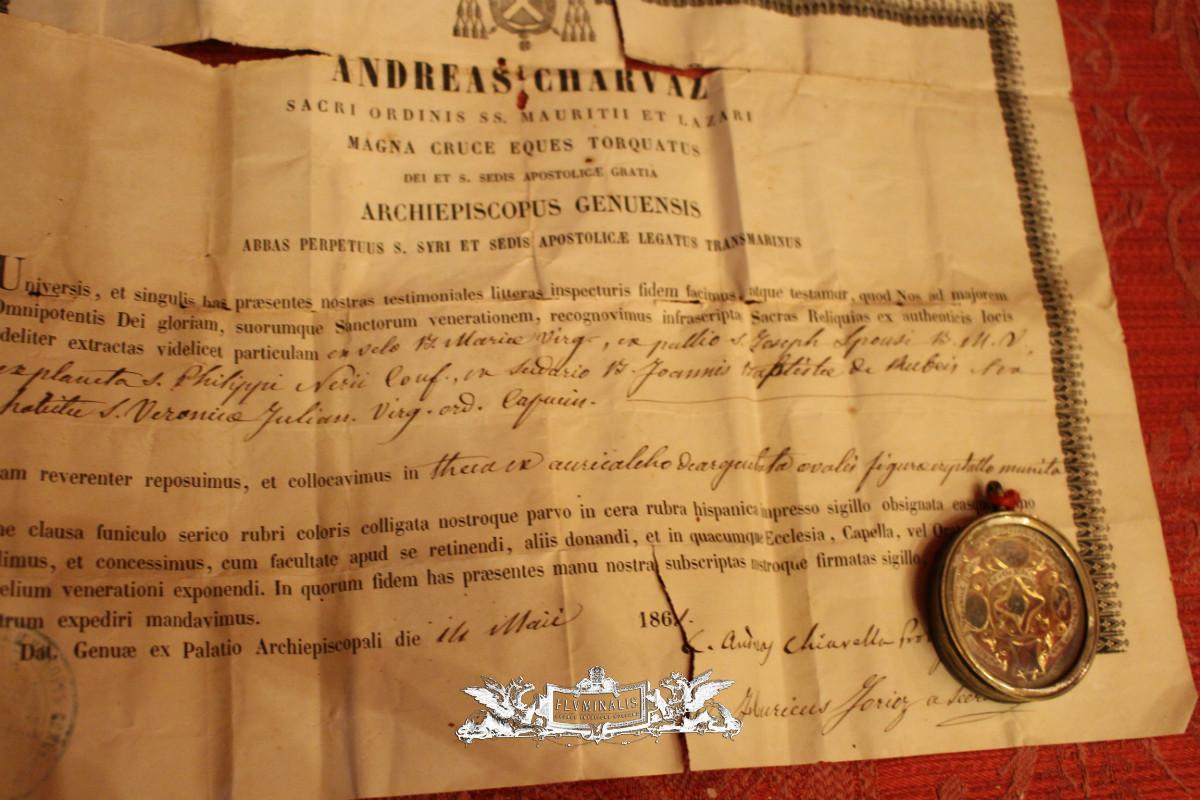 ANDREAS CHARVAZ
SACRI ORDINIS SS. MAURITII ET LAZARI
MAGNA CRUCE EQUES TORQUATUS
DEI ET S. SEDIS APOSTOLICÆ GRATIA
ARCHIEPISCOPUS GENUENSIS
ABBAS PERPETUUS S. SYRI ET SEDIS APOSTOLICÆ LEGATUS TRANSMARINUS
Universis, et singulis has præsentes nostras testimoniales litteras inspecturis fidem facimus, atque testamur, quod Nos ad majorem
Omnipotentis Dei gloriam, suorumque Sanctorum venerationem, recognovimus infrascripta Sacras Reliquias ex authenticis locis
deliter extractas videlicet particulam ex velo B. Mariæ Virg., ex pallio S. Joseph Sponsi B. M. V.,
ex planeta S. Philippi Nerii Conf., ex sudario B. Joannis Baptistæ de Rubeis
S. Veronicæ Julian. Virg. ord. Capucin.
am reverenter reposuimus, et collocavimus in theca ex auricalcho deargentata ovalis figuræ crystallo munita
ne clausa funiculo serico rubri coloris colligata nostroque parvo in cera rubra hispanica impresso sigillo obsignata
dimus, et concessimus, cum facultate apud se retinendi, aliis donandi, et in quacumque Ecclesia, Capella, vel
elium venerationi exponendi. In quorum fidem has præsentes manu nostra subscriptas nostroque firmatas sigillo
trum expediri mandavimus.
Dat. Genuæ ex Palatio Archiepiscopali die 14 Maii 1861.
Andreas Chiavella
a Secr
FLVMINALIS